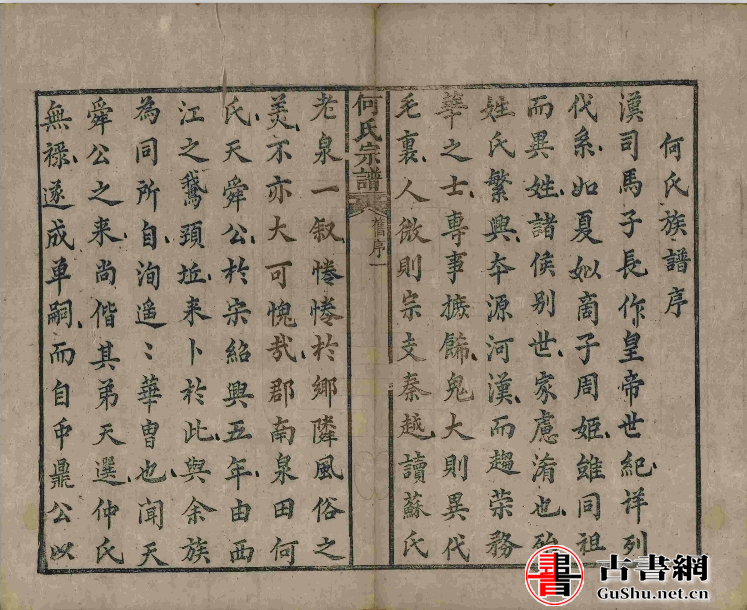 何氏族譜序
漢司馬子長作皇帝世紀詳列
代系如夏姒商子周姬雖同祖
而異姓諸侯别世家慮淆也殆
姓氏繁興本源河漢而趨荣務
華之士專事掞餙鬼大則異代
毛裏人微則宗支秦越讀蘇氏
何氏宗譜
舊序一
老泉一叙惓惓於鄉隣風俗之
美不亦大可愧哉郡南泉田何
氏天舜公於宋紹興五年由西
江之鵝頚坵来卜於此與余族
為同所自洵遥〻華胄也闻天
舜公之来尚偕其弟天選仲氏
無禄遂成单嗣而自中鼎公以
書
古書網
GuShu.net.cn